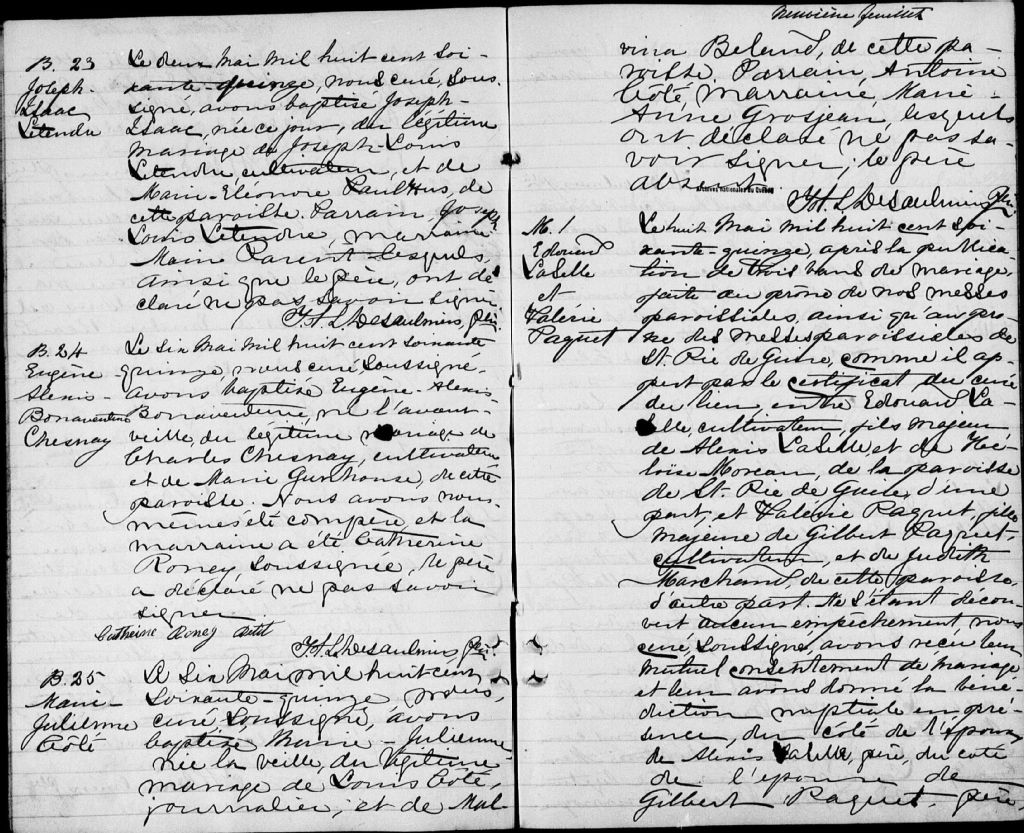 B. 23
Joseph-
Isaac
Letendre
Le deux Mai mil huit cent soi-
xante-quinze, nous curé, sous-
signé, avons baptisé Joseph-
Isaac, née ce jour, du légitime
mariage de Joseph-Louis
Letendre, cultivateur, et de
Marie-Eléonore Paul Hus, de
cette paroisse. Parrain, Joseph
Louis Letendre, marraine
Marie Parent lesquels,
ainsi que le père, ont dé-
claré ne pas savoir signer
Jos. L. Desaulniers, Ptre
B. 24
Eugène
Alexis-
Bonaventure
Chesnay
Le six Mai mil huit cent soixante
quinze, nous curé soussigné-
avons baptisé Eugène-Alexis-
Bonaventure, né l'avant-
veille, du légitime mariage de
Charles Chesnay, cultivateur
et de Marie, de cette
paroisse. Nous avons nous
mêmes été compère, et la
marraine a été Catherine
Roney, soussignée, le père
a déclaré ne pas savoir
signer
Catherine Roney
Jos. L. Desaulniers, Ptre
B. 25
Marie-
Julienne
Côté
Le six Mai mil huit cent
soixante-quinze, nous,
curé soussigné, avons
baptisé Marie-Julienne
née la veille, du légitime
mariage de Louis Côté,
journalier, et de Mal-
Neuvième feuillet
vina Beland, de cette pa-
roisse. Parrain, Antoine
Côté, Marraine, Marie-
Anne Grosjean, lesquels
ont déclaré ne pas sa-
voir signer; le père
absent
Archives nationales du Québec
Jos. L. Desaulniers Ptre
M. 1
Edouard
Laselle
et
Valerie
Paquet
Le huit Mai mil huit cent soi-
xante-quinze, après la publica-
tion de trois bans de mariage,
faite au prône de nos messes
paroissiales, ainsi qu'au prô-
ne des messes paroissiales de
St. Pie de Guire, comme il ap-
pert par le certificat du curé
du lieu, entre Edouard La-
selle, cultivateur, fils majeur
de Alexis Laselle et de Hé-
loïse Moreau, de la paroisse
de St. Pie de Guire, d'une
part, et Valerie Paquet, fille
majeure de Gilbert Paquet-
cultivateur, et de Judith
Marchand, de cette paroisse,
d'autre part. Ne s'étant décou-
vert aucun empêchement nous
curé, soussigné, avons reçu leur
mutuel consentement de mariage
et leur avons donné la béné-
diction nuptiale en pré-
sence, du côté de l'époux,
de Alexis Laselle, père, du coté
de l'épouse de
Gilbert Paquet, père,